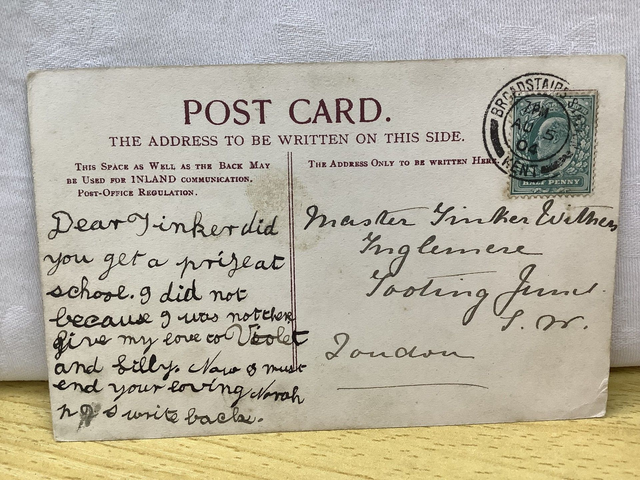 POST CARD.
THE ADDRESS TO BE WRITTEN ON THIS SIDE.
THIS SPACE AS WELL AS THE BACK MAY
BE USED FOR INLAND COMMUNICATION.
POST-OFFICE REGULATION.
THE ADDRESS ONLY TO BE WRITTEN HERE.
BROADSTAIRS
AU 5
04
KENT
HALF PENNY
Dear Tinker did
you get a prize at
school. I did not
because I was not there
give my love to Violet
and billy. Now I must
end your loving Norah
write back.
Master Tinker Withers
Inglemere
Tooting Junc.
S. W.
London